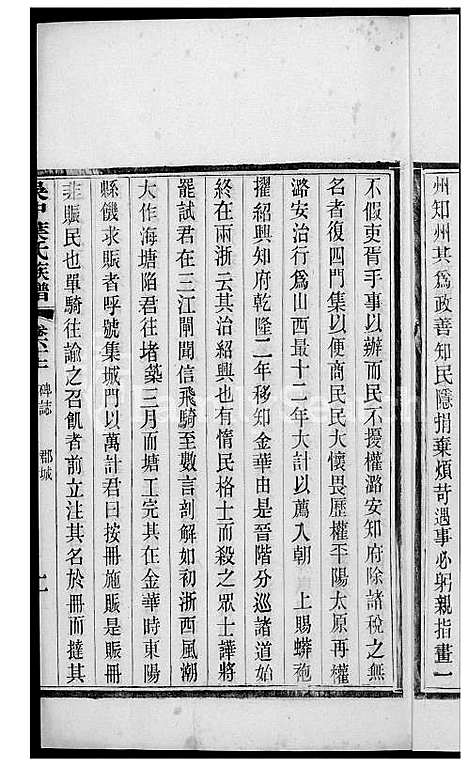 州知州其爲政善知民隱捐棄煩苛遇事必躬親指畫一
不假吏胥手事以辦而民不擾權潞安知府除諸稅之無
名者復四門集以便商民民大懷畏歷權平陽太原再權
潞安治行爲山西最十二年大計以薦入朝　上賜蟒袍
擢紹興知府乾隆二年移知金華由是晉階分巡諸道始
終在兩浙云其治紹興也有惰民格士而殺之眾士譁將
罷試君在三江閘聞信飛騎至數言剖解如初浙西風潮
大作海塘陷君往堵築三月而塘工完其在金華時東陽
縣饑求賑者呼號集城門以萬計君曰按冊施賑是賑冊
非賑民也單騎往諭之召飢者前立注其名於冊而撻其
吳中葉氏族譜　卷六十二　碑誌　郡城